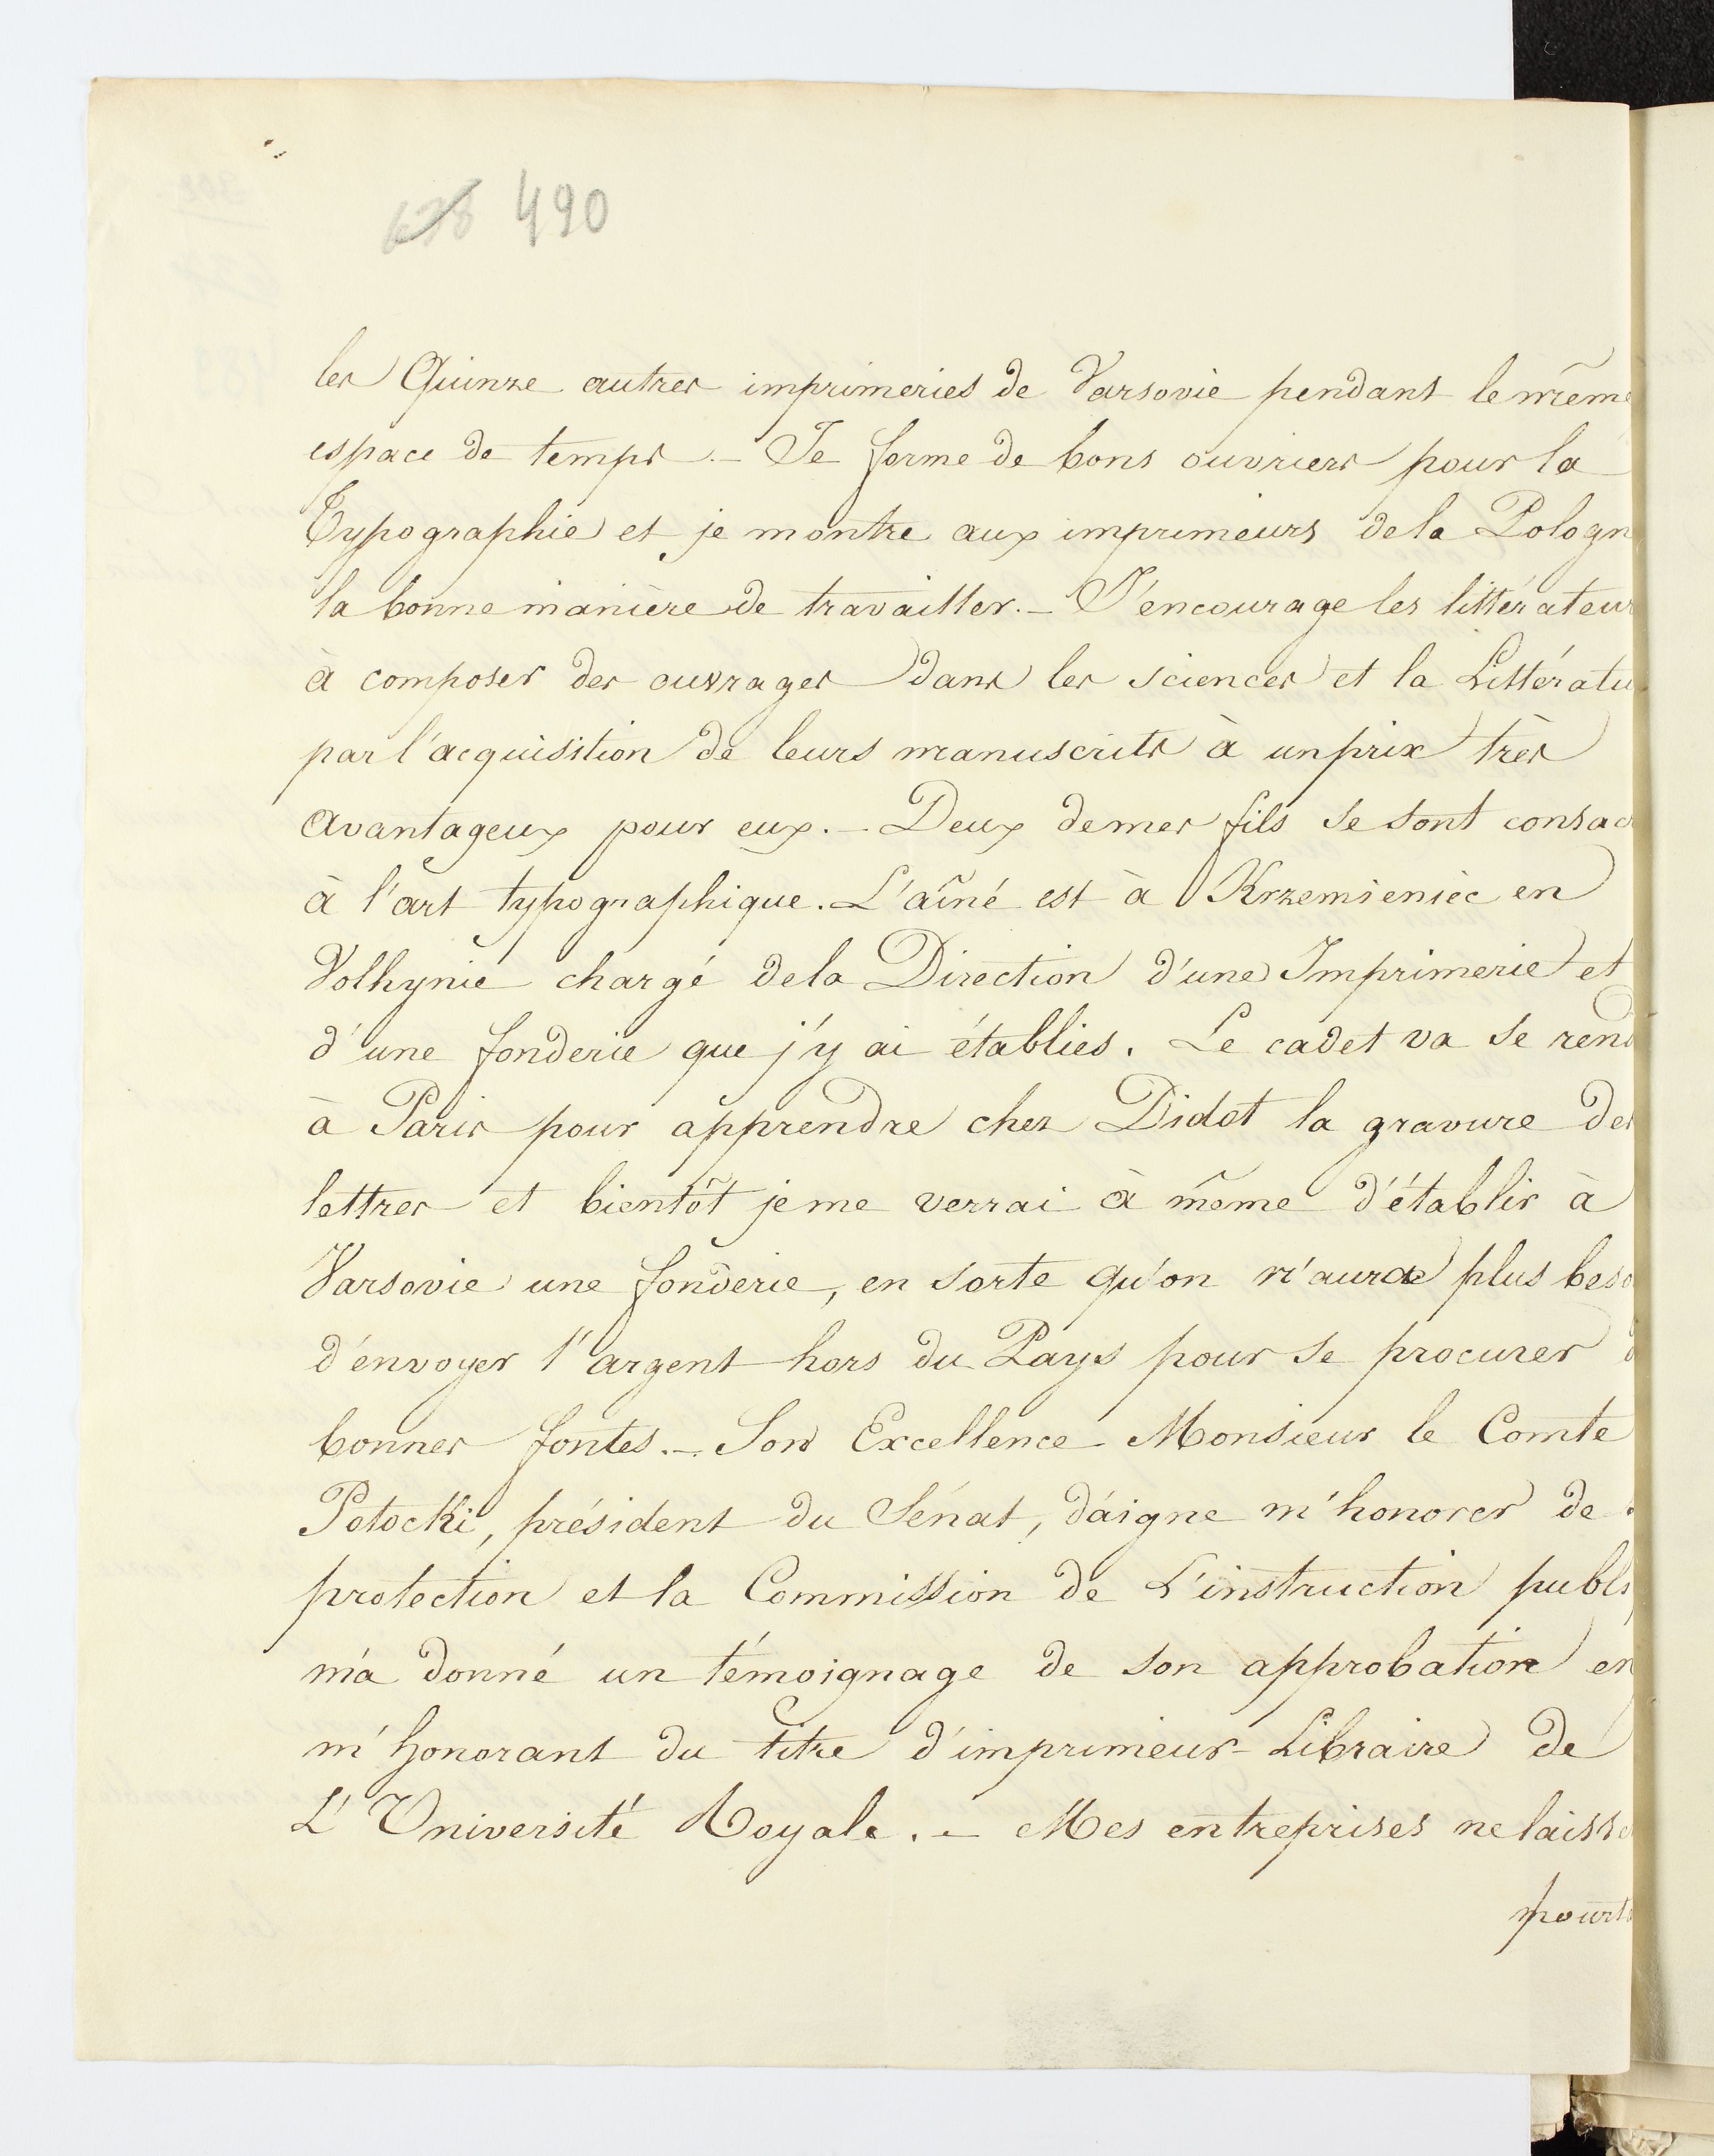 638 490
les Quinze autres imprimeries de Varsovie pendant le même
espace de temps. — Je forme de bons ouvriers pour la
Typographie et je montre aux imprimeurs de la Pologn
la bonne manière de travailler. — J'encourage les littérateur
à composer des ouvrages dans les sciences et la Littératu
par l'acquisition de leurs manuscrits à un prix très
avantageux pour eux. — Deux de mes fils se sont consac
à l'art typographique. L'aîné est à Krzemieniec en
Volhynie chargé de la Direction d'une Imprimerie et
d'une fonderie que j'y ai établies. Le cadet va se rend
à Paris pour apprendre chez Didot la gravure des
lettres et bientôt je me verrai à même d'établir à
Varsovie une fonderie, en sorte qu'on n'aura plus beso
d'envoyer l'argent hors du Pays pour se procurer d
bonnes fontes. — Son Excellence Monsieur le Comte
Potocki, président du Sénat, daigne m'honorer de
protection et la Commission de L'instruction publi
m'a donné un témoignage de son approbation en
m'honorant du titre d'imprimeur-Libraire de
L'Université Royale. — Mes entreprises ne laisse
pourt